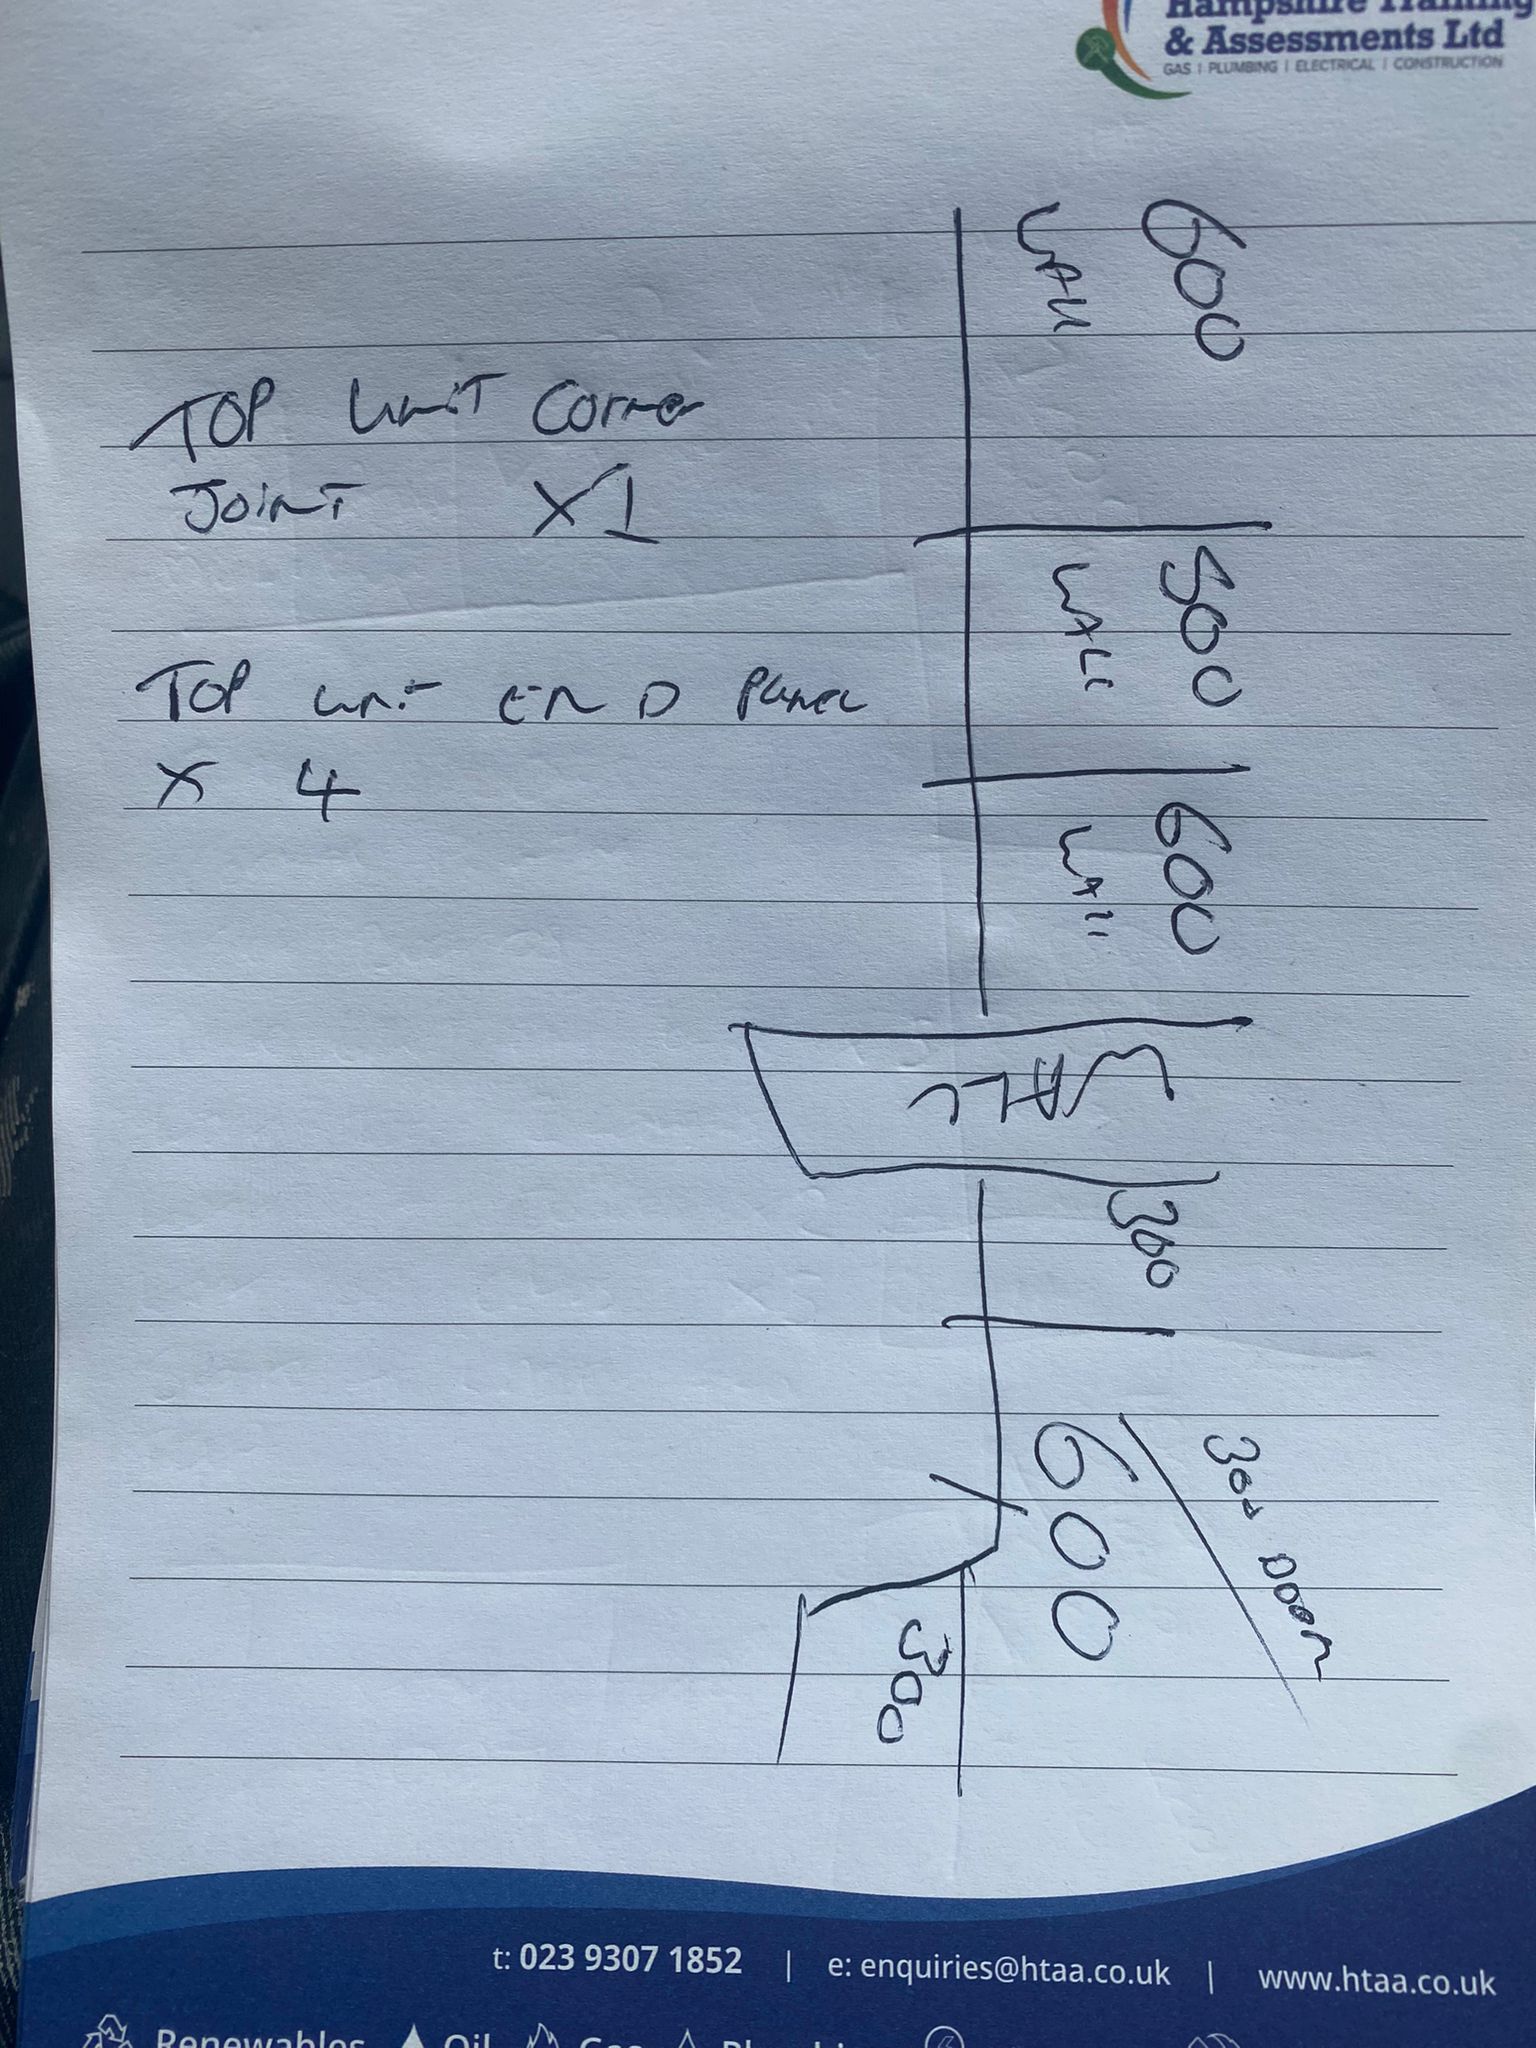 Hampshire Training
& Assessments Ltd
GAS | PLUMBING | ELECTRICAL | CONSTRUCTION
600
WALL
TOP UNIT Corner
JOINT X1
500
WALL
TOP unit END Panel
X 4
600
WALL
WALL
300
600
300 DOOR
300
t: 023 9307 1852 | e: enquiries@htaa.co.uk | www.htaa.co.uk
Renewables Oil Gas